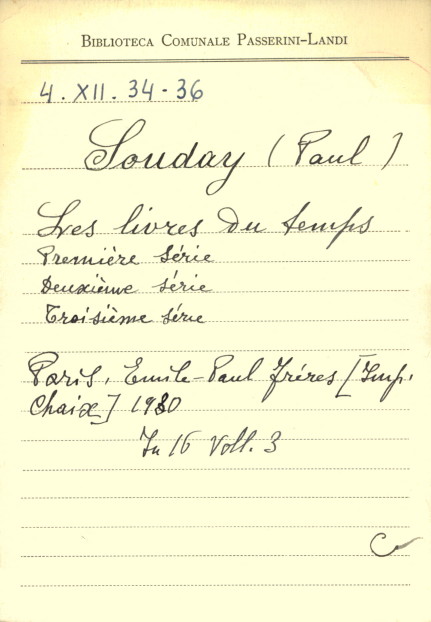 BIBLIOTECA COMUNALE PASSERINI-LANDI
4. XII. 34-36
Souday (Paul)
Les livres du temps
Première Série
Deuxième Série
Troisième Série
Paris, Emile-Paul Fréres [Imp.
Chaix] 1930
In 16 Voll. 3
C